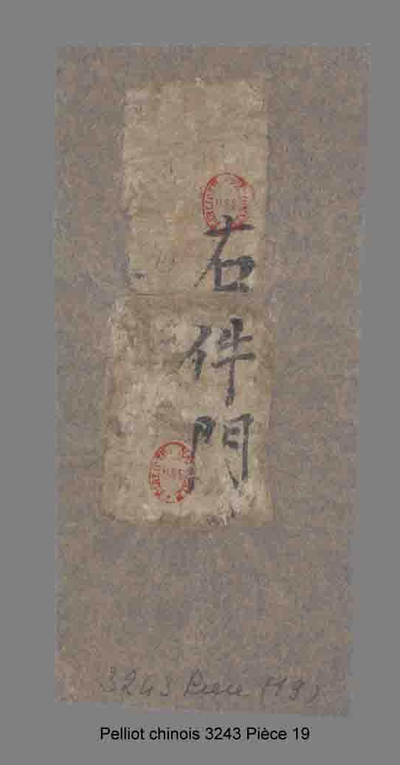 右件門
3243 Pièce (19)
Pelliot chinois 3243 Pièce 19